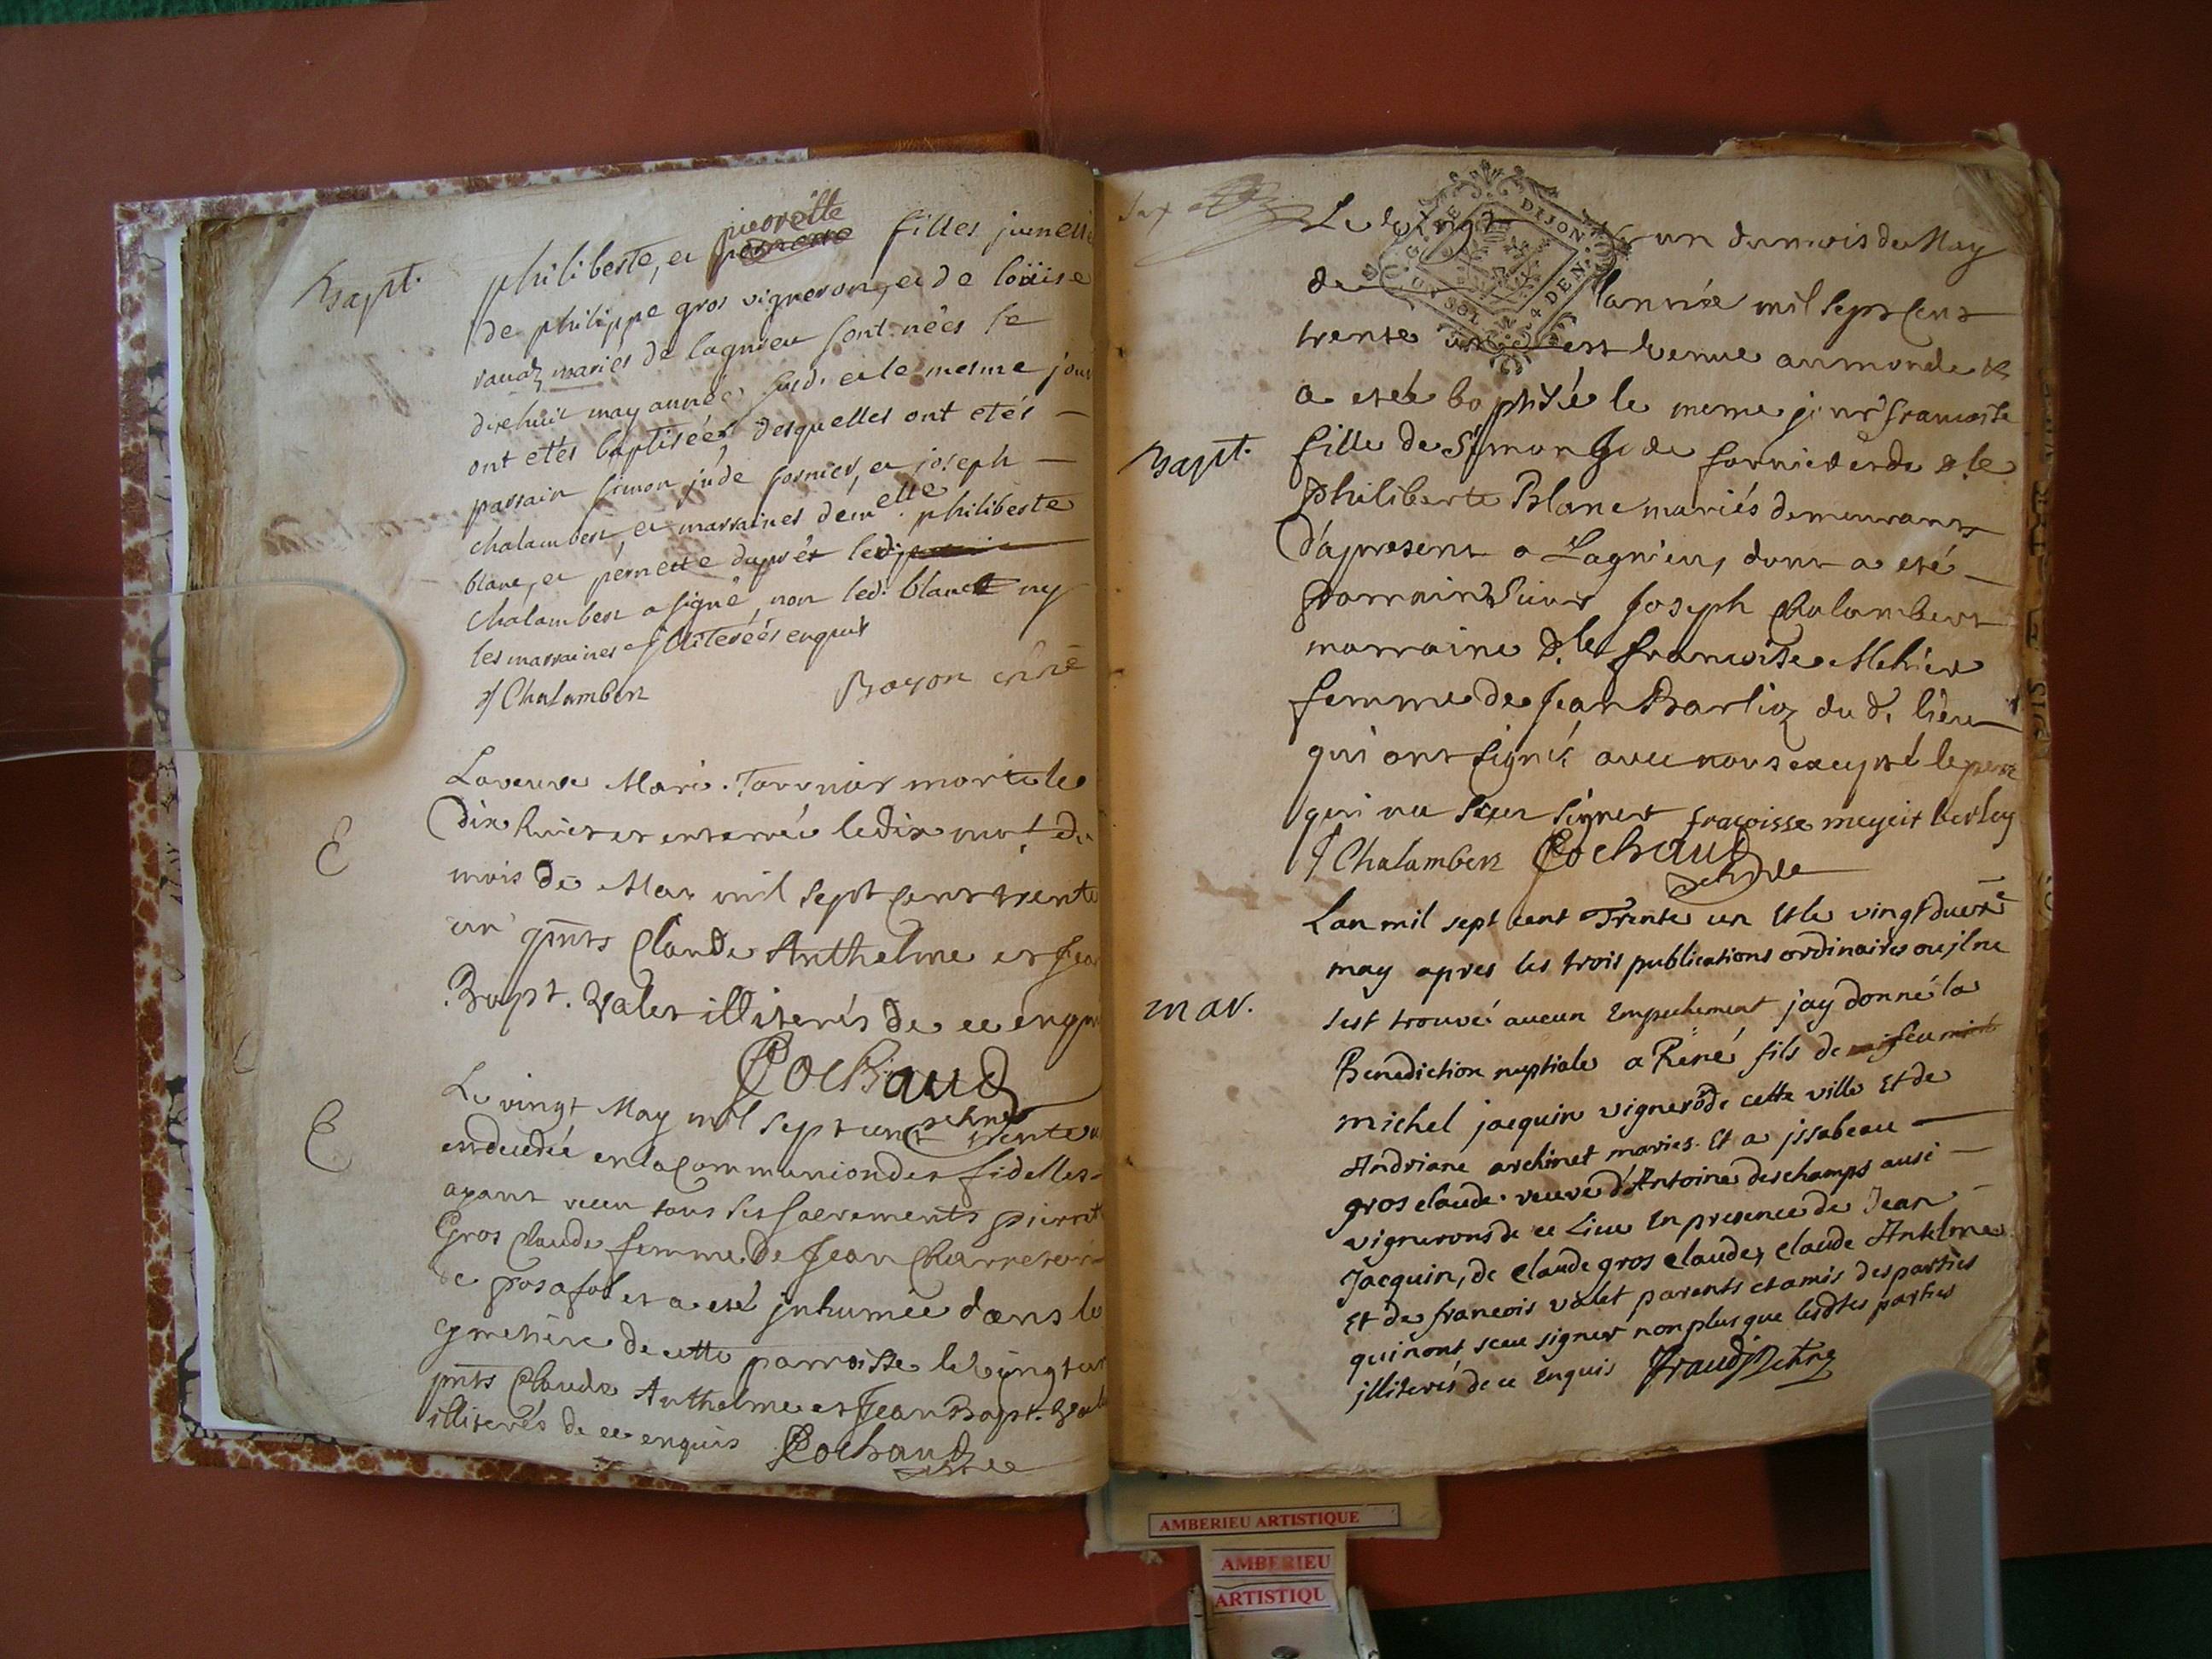 Bapt.
philiberte, et pierrette pernette filles jumelles
de philippe gros vigneron, et de loüise
mariés de lagnieu sont nées le
dixhuit may année susd. et le mesme jour
ont etés baptiseés desquelles ont etés
parrain simon jude fornier, et joseph
chalambert, et marraines demelle philiberte
blanc, et pernette dupré
chalambert a signé, non led. blanc ny
les marraines illitereés enquis
J Chalambert
E
La veuve Mari. morte le
dix huict et enterrée le dix nof du
mois de Mai mil sept cent trente
un pnts Claude Anthelme et Jean
Bapt. Valet illiterés de ce enquis
Cochaud
E
Le vingt May mil sept cent trente un
est decedée en la Communion des fidelles
ayant receu tous les sacrements pierrette
Gros Claude femme de Jean
de posafol et a esté inhumée dans le
cymetiere de cette parroisse le vingt un
pnts Claude Anthelme et Jean Bapt. Valet
illiterés de ce enquis Cochaud
DIJON
4 DEN.
Le vingt un du mois de May
de lannée mil sept cent
trente un est venue au monde &
a esté baptisé le meme jour francoise
Bapt.
fille de Simon Jude fornier et de dle
philiberte Blanc mariés demeurant
d'apresent a Lagnieu, dont a esté
parrain Sieur Joseph Chalambert
marraine d.le francoise
femme de Jean Barlioz du d. lieu
qui ont signés avec nous excepté le pere
qui na sceu signer
J Chalambert Cochaud
Lan mil sept cent Trente un Et le vingt
may apres les trois publications ordinaires ou il ne
mar.
sest trouvé aucun Empechement j'ay donné la
Benediction nuptiale a René fils de feu
michel jacquin vignerõ de cette ville Et de
Andriane archinet mariés. Et a jssabeau
gros claude veuve d'Antoine deschamps ausi
vignerons de ce Lieu En presence de Jean
Jacquin, de Claude gros claude, Claude Antelme
Et de francois valet parents et amis des parties
qui nont sceu signer non plus que lesdtes parties
jlliterés de ce Enquis
AMBERIEU ARTISTIQUE
AMBERIEU
ARTISTIQU